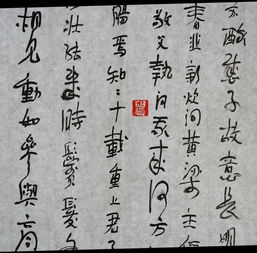 相見動如參與商
壯能幾時鬢髮
腸焉知二十載重上君子
敬父執問我來何方
春韭新炊間黄粱主稱
醉感子故意長明